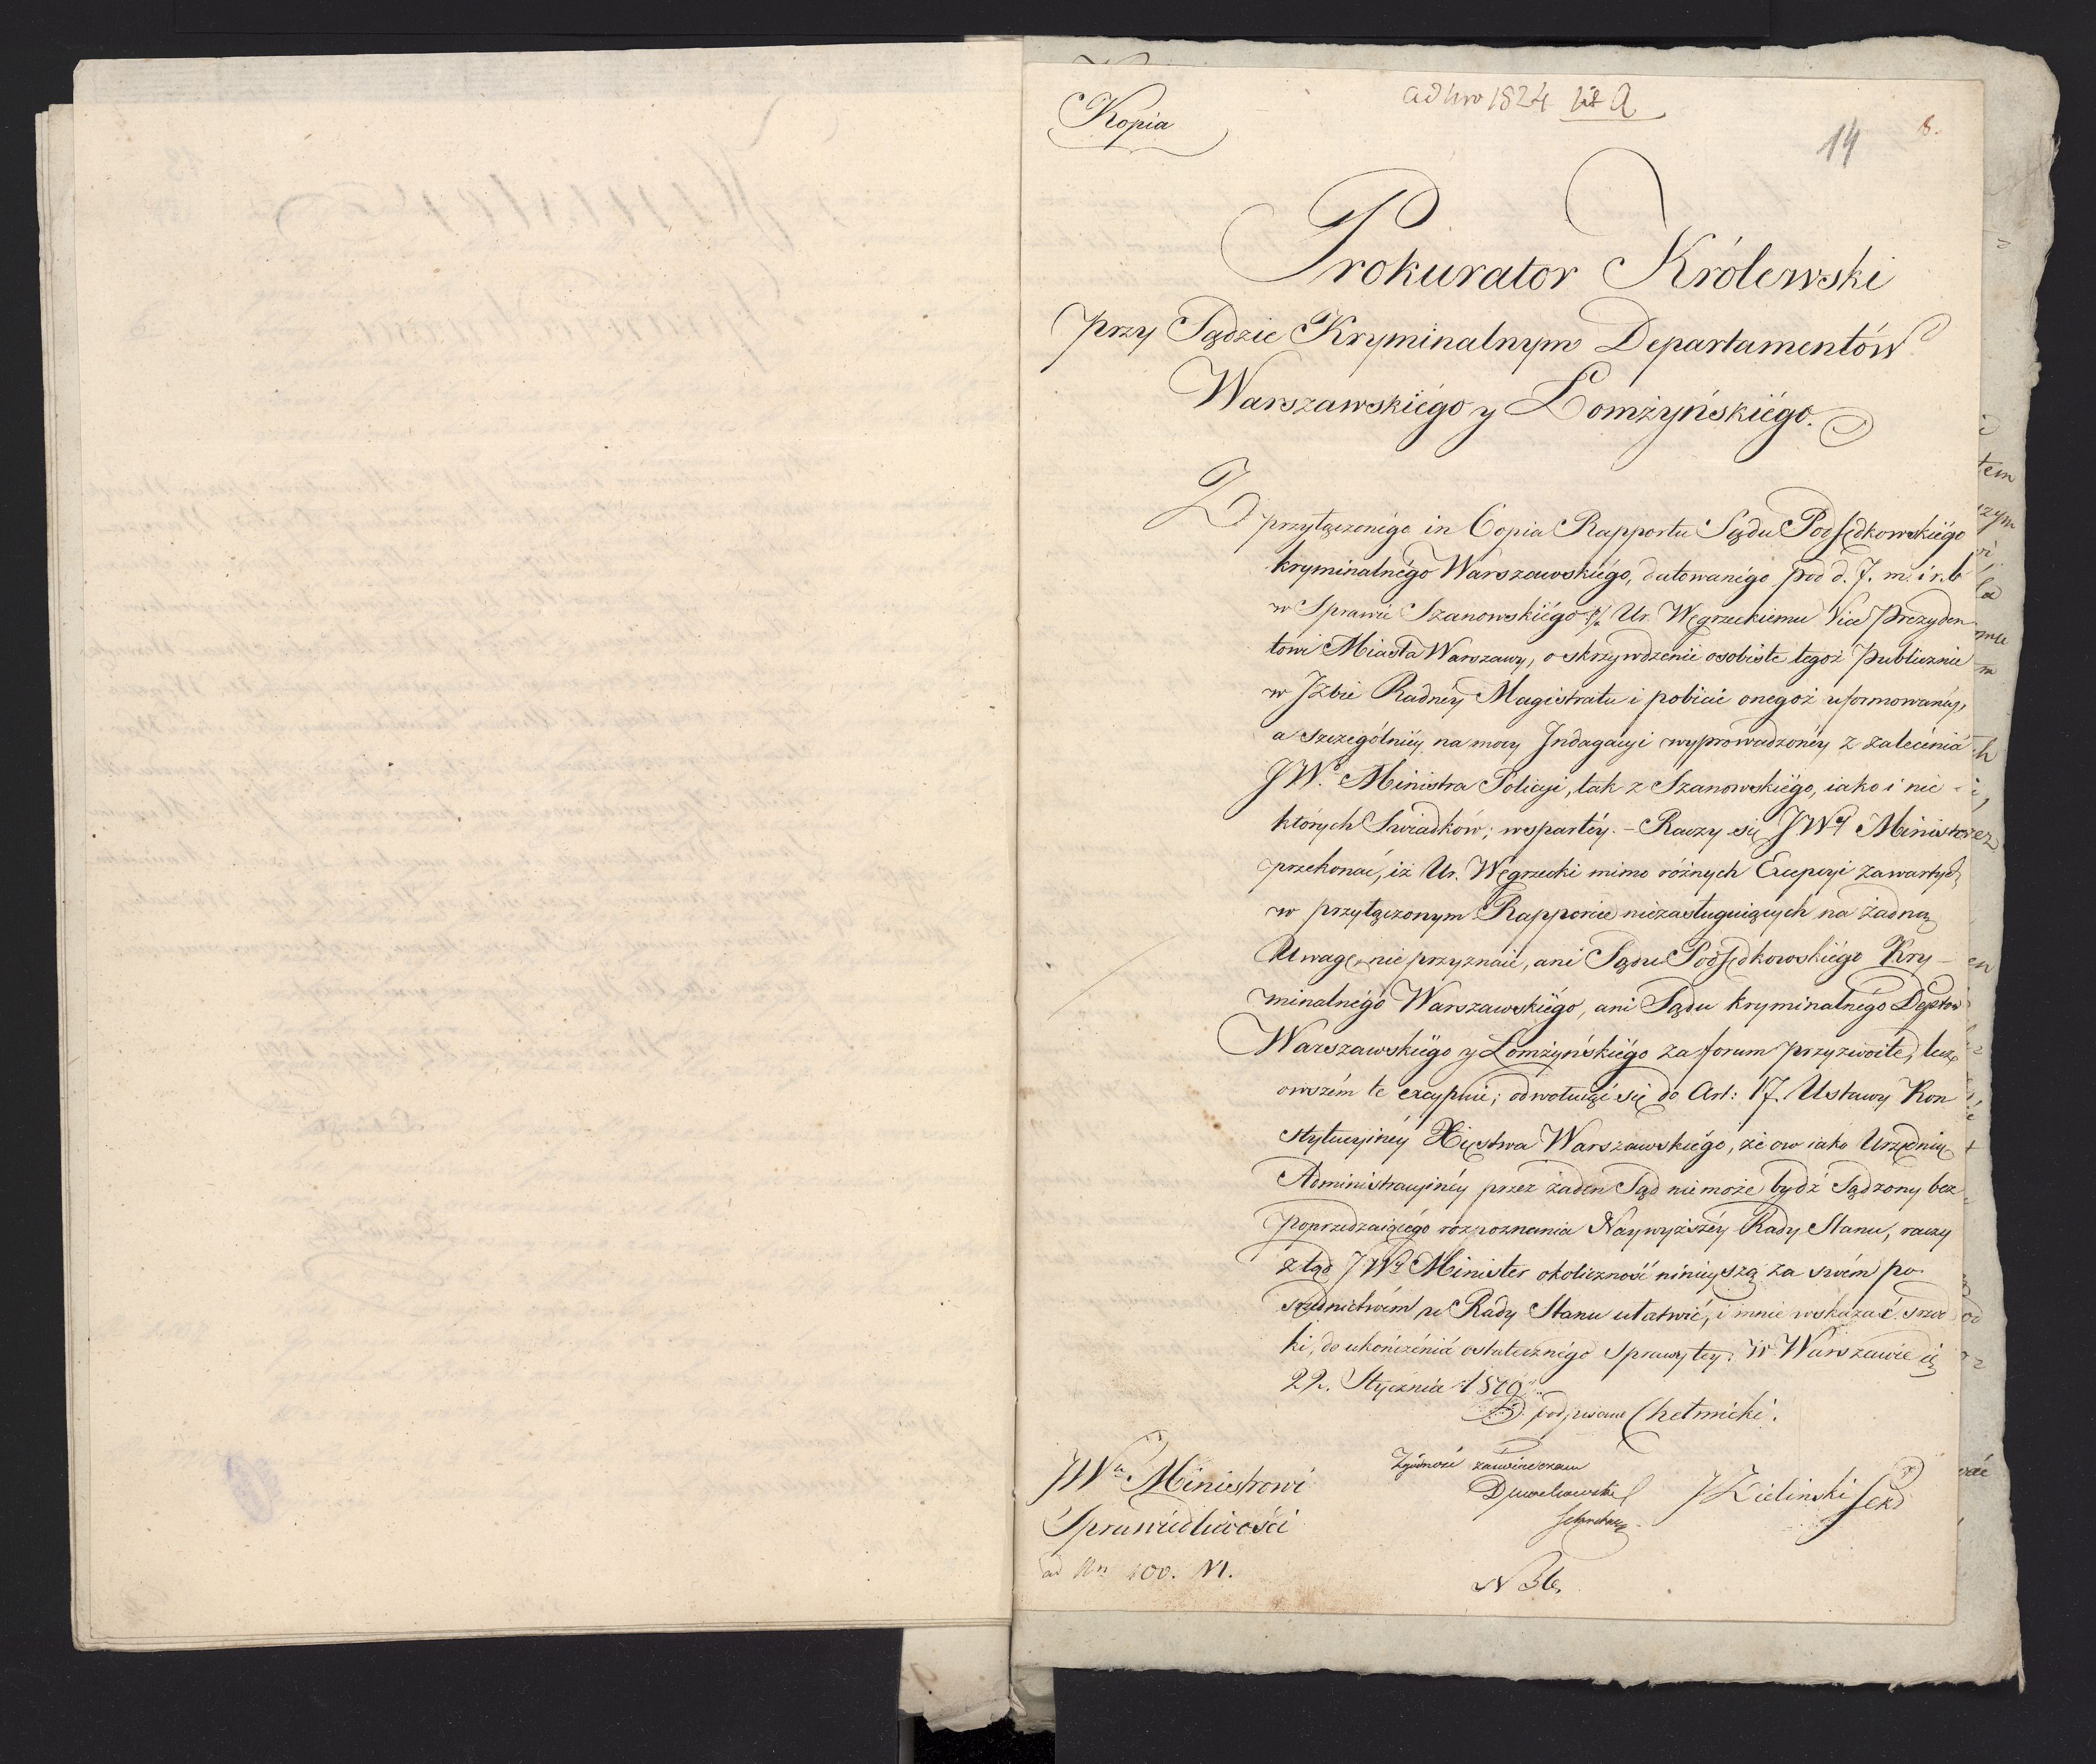 Kopia
ad Nro 1824 lit A
14
8.
Prokurator Królewski
przy Sądzie Kryminalnym Departamentów
Warszawskiégo y Łomżyńskiégo.
Z przyłączonégo in Copia Rapportu Sądu Podsędkowskiégo
kryminalnégo Warszawskiégo, datowanégo pod d. 7. m. i r. b
w Sprawie Szanowskiégo p/ko Ur. Węgrzeckiemu Vice Prezyden
towi Miasta Warszawy, o skrzywdzenie osobiste tegoż publicznie
w Jzbie Radnéy Magistratu i pobicie onegoż uformowanéy,
a szczególniéy na mocy Jndagacyi wyprowadzonéy z zalecénia
JWo Ministra Policyi, tak z Szanowskiégo, iako i nie
których Swiadków; wspartéy. – Raczy się JWy Minister
przekonać, iż Ur. Węgrzecki mimo różnych Excepcyi zawartych
w przyłączonym Rapporcie niezasługuiących na żadną
Uwagę, nie przyznaie, ani Sądu Podsędkowskiégo Kry-
minalnégo Warszawskiégo, ani Sądu kryminalnégo Deptów
Warszawskiégo y Łomżyńskiégo za forum przyzwoite, lecz
owszém te excypuie; odwołuiąc się do Art: 17. Ustawy Kon
stytucyinéy Xięstwa Warszawskiégo, że on iako Urzędnik
Administracyinéy przez żaden Sąd nie może bydź Sądzony bez
poprzedzaiącégo rozpoznania Naywyższéy Rady Stanu, raczy
ztąd JWy Minister okoliczność ninieyszą za swém po
srzednictwém u Rady Stanu ułatwić, i mnie wskazać srzod
ki, do ukończénia ostatecznégo Sprawy tey. W Warszawie
22. Stycznia 1810
podpisano Chełmicki.
JWu Ministrowi
Sprawiedliwości
ad Nm 100. M.
Zgodność zaswiadczam
Sekretarz
JZielinski Sekr
N 36.